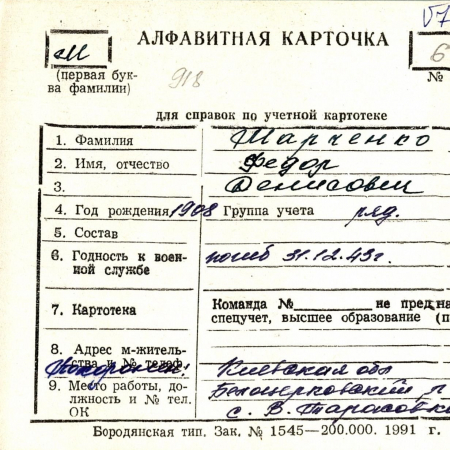 АЛФАВИТНАЯ КАРТОЧКА
М
6
(первая бук-
ва фамилии)
918
№
для справок по учетной картотеке
1. Фамилия Марченко
2. Имя, отчество Федор
3. Денисович
4. Год рождения 1908 Группа учета ряд.
5. Состав
6. Годность к воен-
ной службе погиб 31.12.43г.
7. Картотека Команда № не пред на
спецучет, высшее образование (п
8. Адрес м-житель-
ства и № телеф. Киевская обл
Похоронен:
9. Место работы, до-
лжность и № тел.
ОК
Белоцерковский р
с. В. Тарасовка
Бородянская тип. Зак. № 1545—200.000. 1991 г.